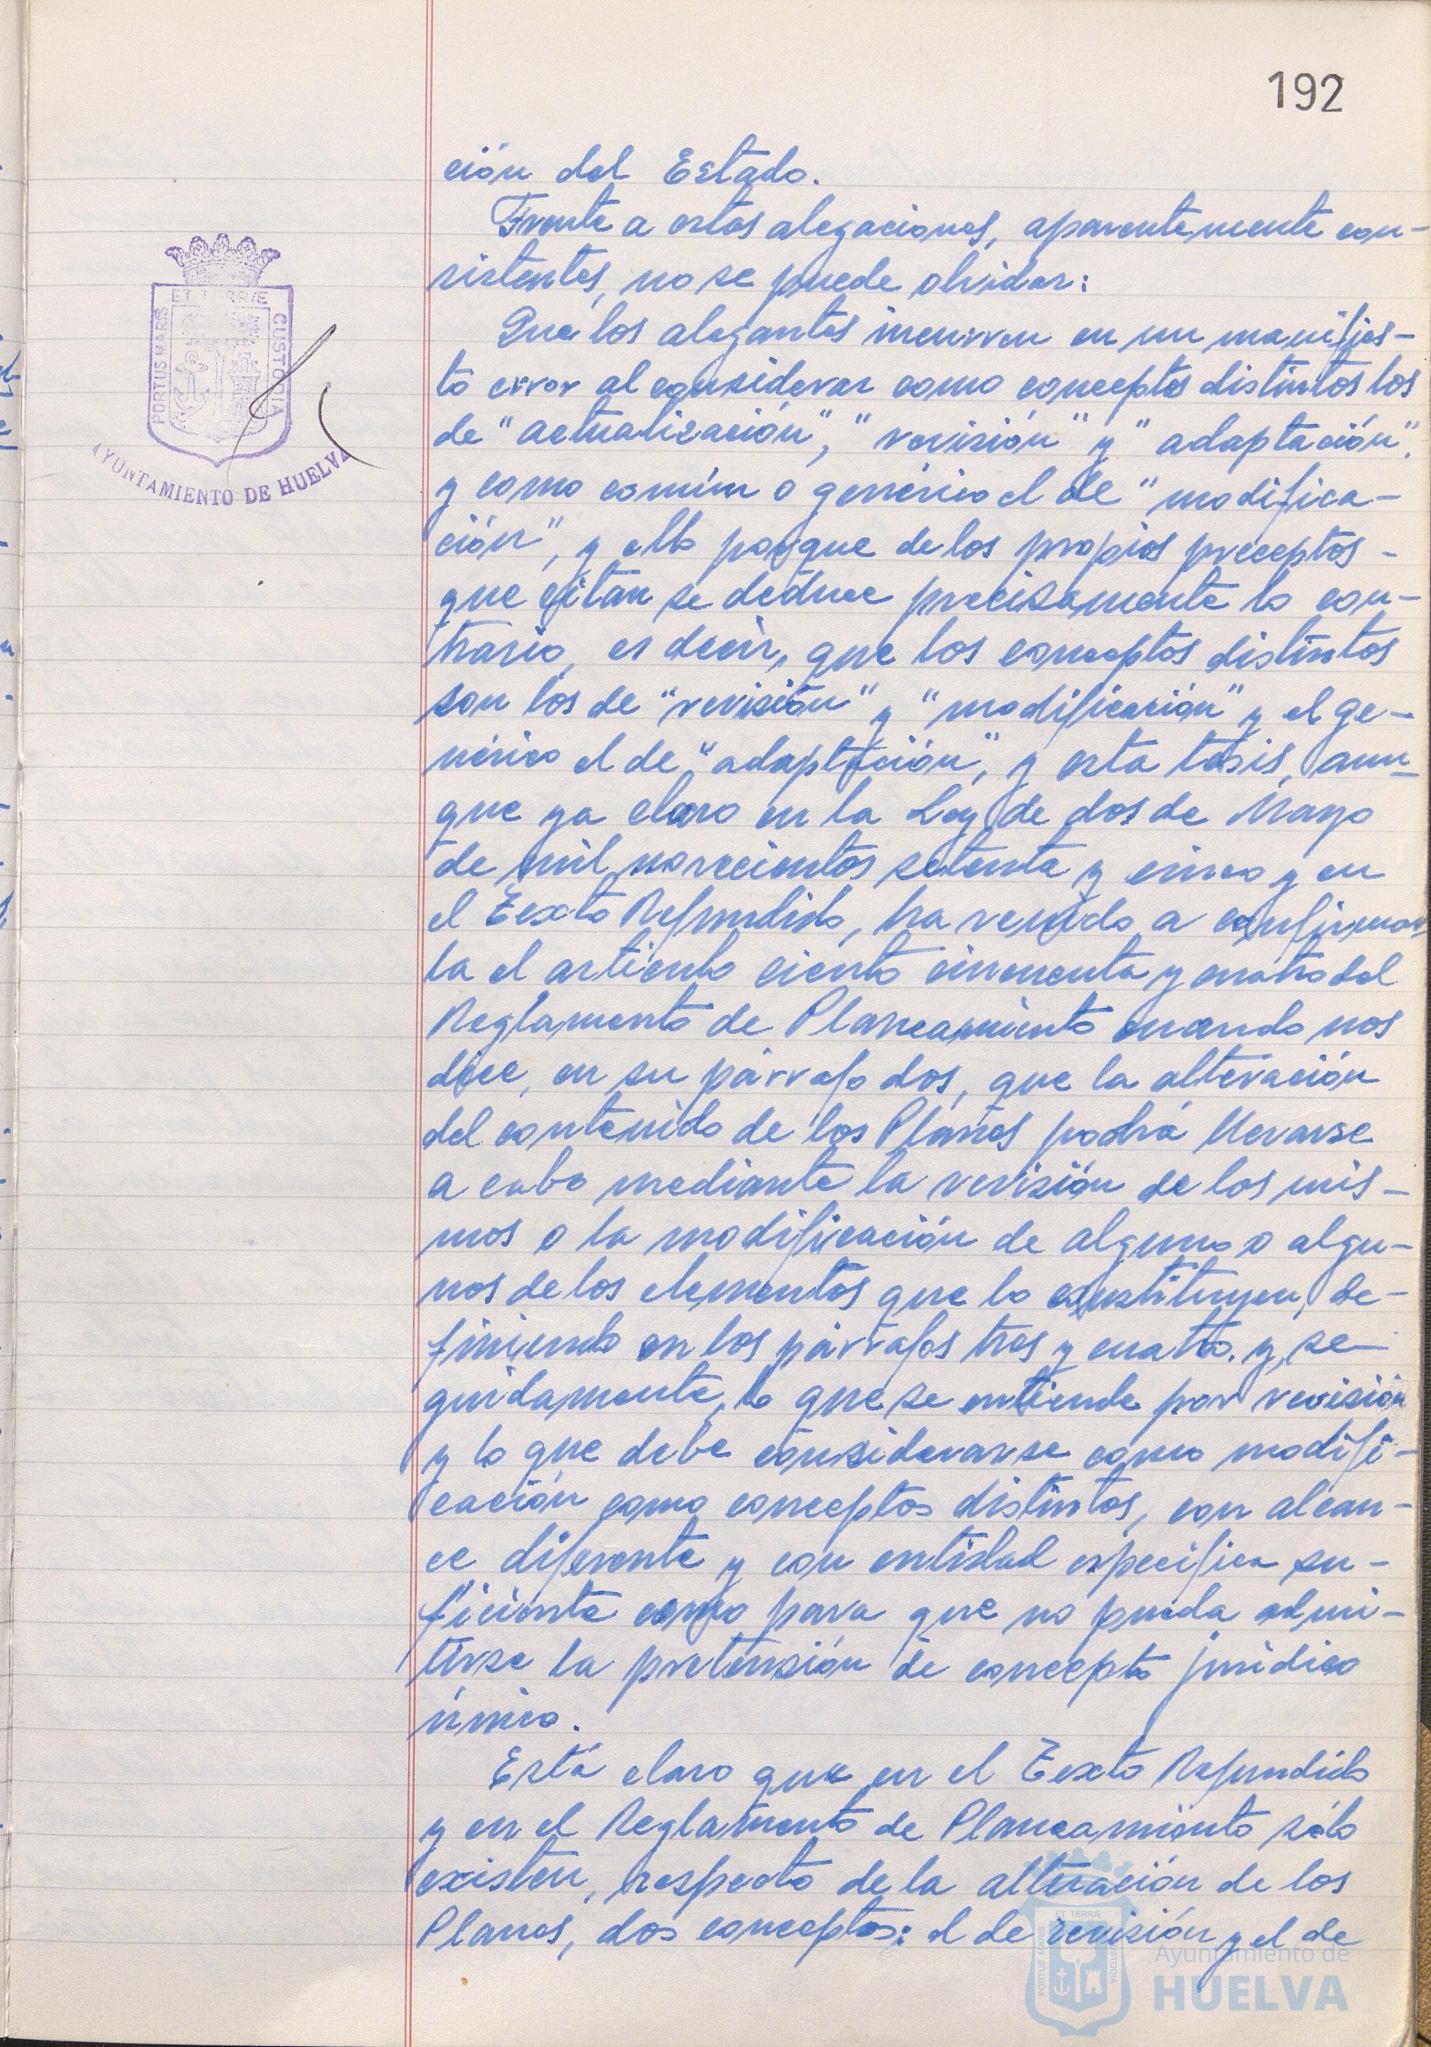 192
ción del Estado.
Frente a estas alegaciones, aparentemente con-
sistentes, no se puede olvidar:
Que los alegantes incurren en un manifies-
to error al considerar como conceptos distintos los
de "actualización", "revisión" y "adaptación",
y como común o genérico el de "modifica-
ción", y ello porque de los propios preceptos -
que citan se deduce precisamente lo con-
trario, es decir, que los conceptos distintos
son los de "revisión" y "modificación" y el ge-
nérico el de "adaptación", y esta tesis, aun-
que ya claro en la Ley de dos de Mayo
de mil novecientos setenta y cinco y en
el Texto Refundido, ha venido a confirmar
la el artículo ciento cincuenta y cuatro del
Reglamento de Planeamiento cuando nos
dice, en su párrafo dos, que la alteración
del contenido de los Planes podrá llevarse
a cabo mediante la revisión de los mis-
mos o la modificación de alguno o algu-
nos de los elementos que lo constituyen, de-
finiendo en los párrafos tres y cuatro. y, se-
guidamente, lo que se entiende por revisión
y lo que debe considerarse como modifi-
cación como conceptos distintos, con alcan-
ce diferente y con entidad específica su-
ficiente como para que no pueda admi-
tirse la pretensión de concepto jurídico
único.
Está claro que en el Texto Refundido
y en el Reglamento de Planeamiento sólo
existen, respecto de la alteración de los
Planes, dos conceptos: el de revisión y el de
PORTUS MARIS ET TERRÆ CUSTODIA
AYUNTAMIENTO DE HUELVA
PORTUS MARIS ET TERRÆ CUSTODIA
Ayuntamiento de
HUELVA